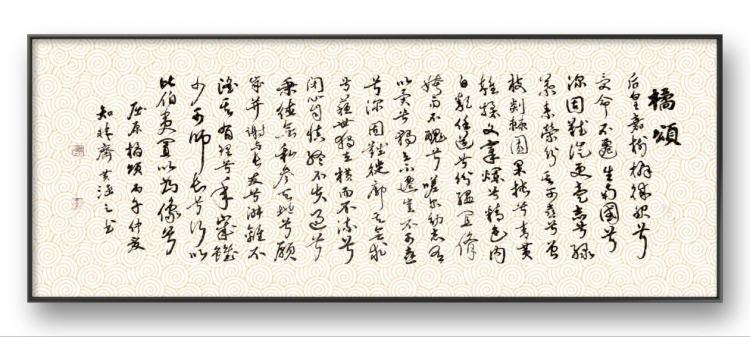 橘頌
后皇嘉樹橘徠服兮
受命不遷生南國兮
深固難徙更壹志兮綠
葉素榮紛其可喜兮曾
枝剡棘圓果摶兮青黃
雜糅文章爛兮精色內
白類任道兮紛縕宜修
姱而不醜兮嗟爾幼志有
以異兮獨立不遷豈不可喜
兮深固難徙廓其無求
兮蘇世獨立橫而不流兮
閉心自慎終不失過兮
秉德無私參天地兮願
歲并謝與長友兮淑離不
淫其有理兮年歲雖
少可師長兮行
比伯夷置以為像兮
屈原橘頌丙午仲夏
知齋之書